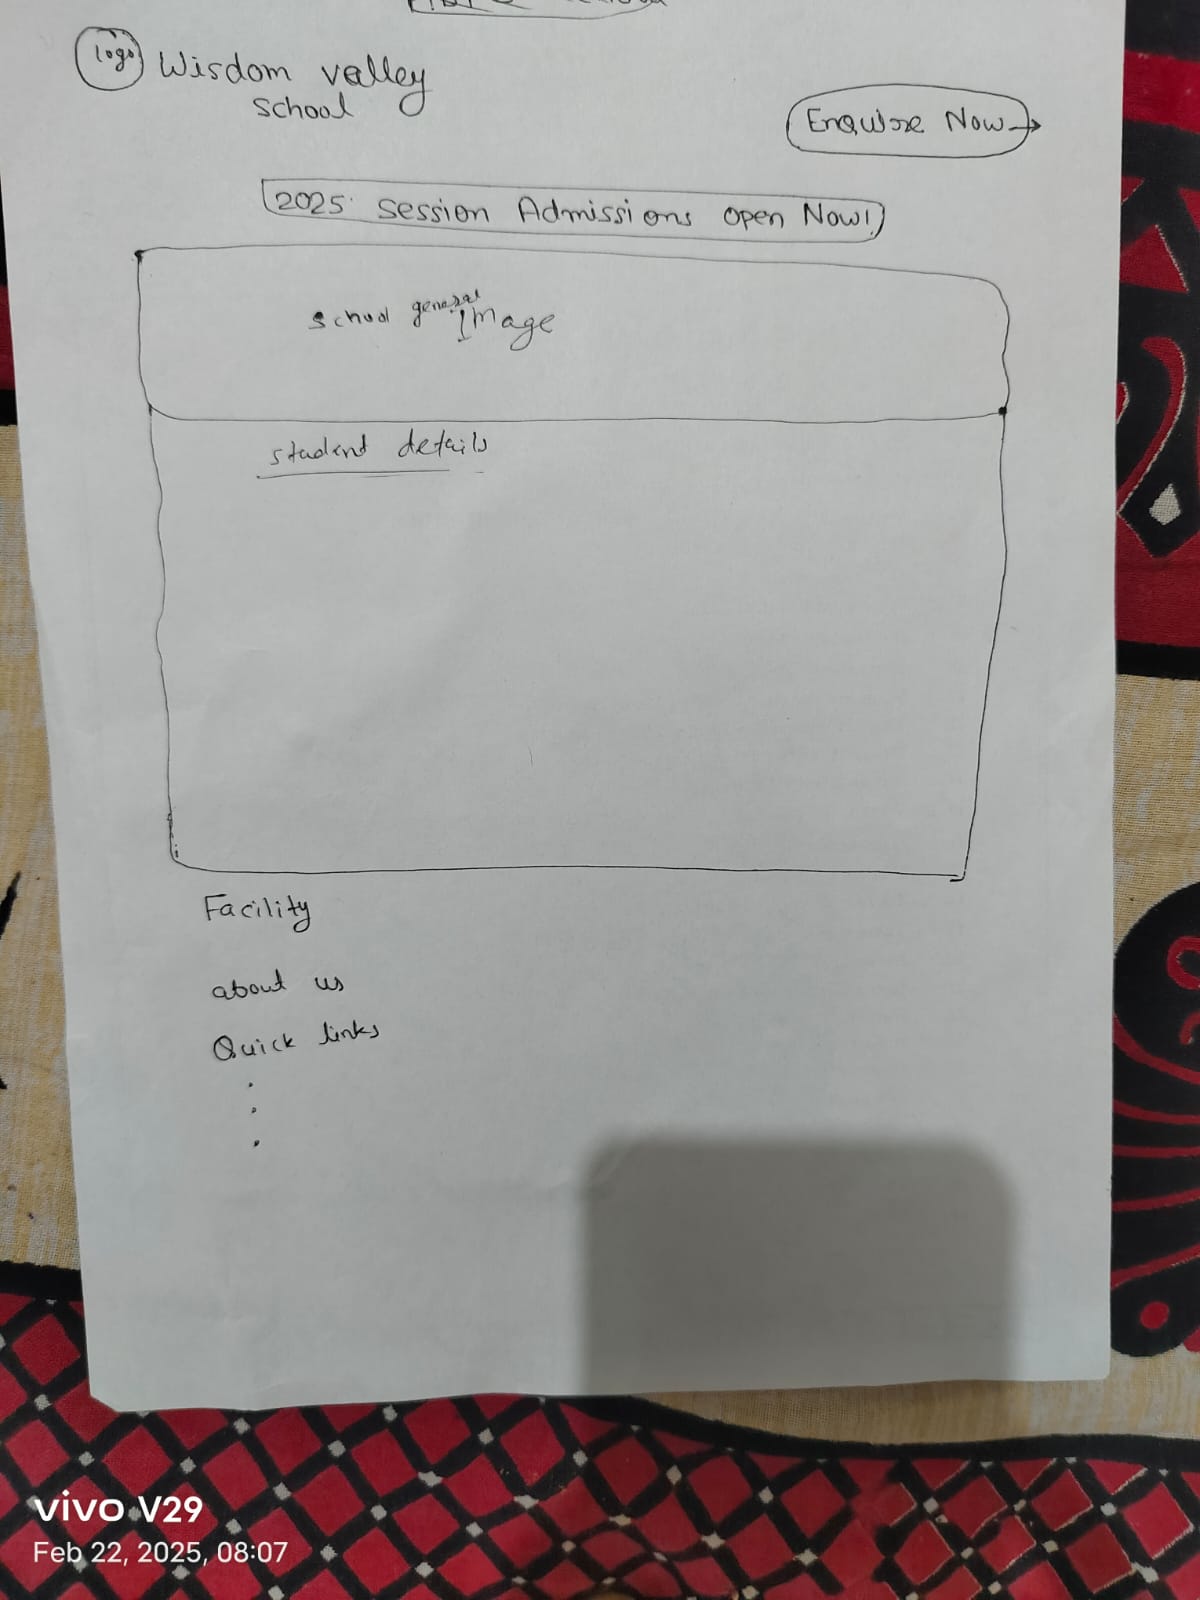 logo
Wisdom valley
school
Enquire Now →
2025 Session Admissions open Now!
school general Image
student details
Facility
about us
Quick links
.
.
.
vivo V29
Feb 22, 2025, 08:07